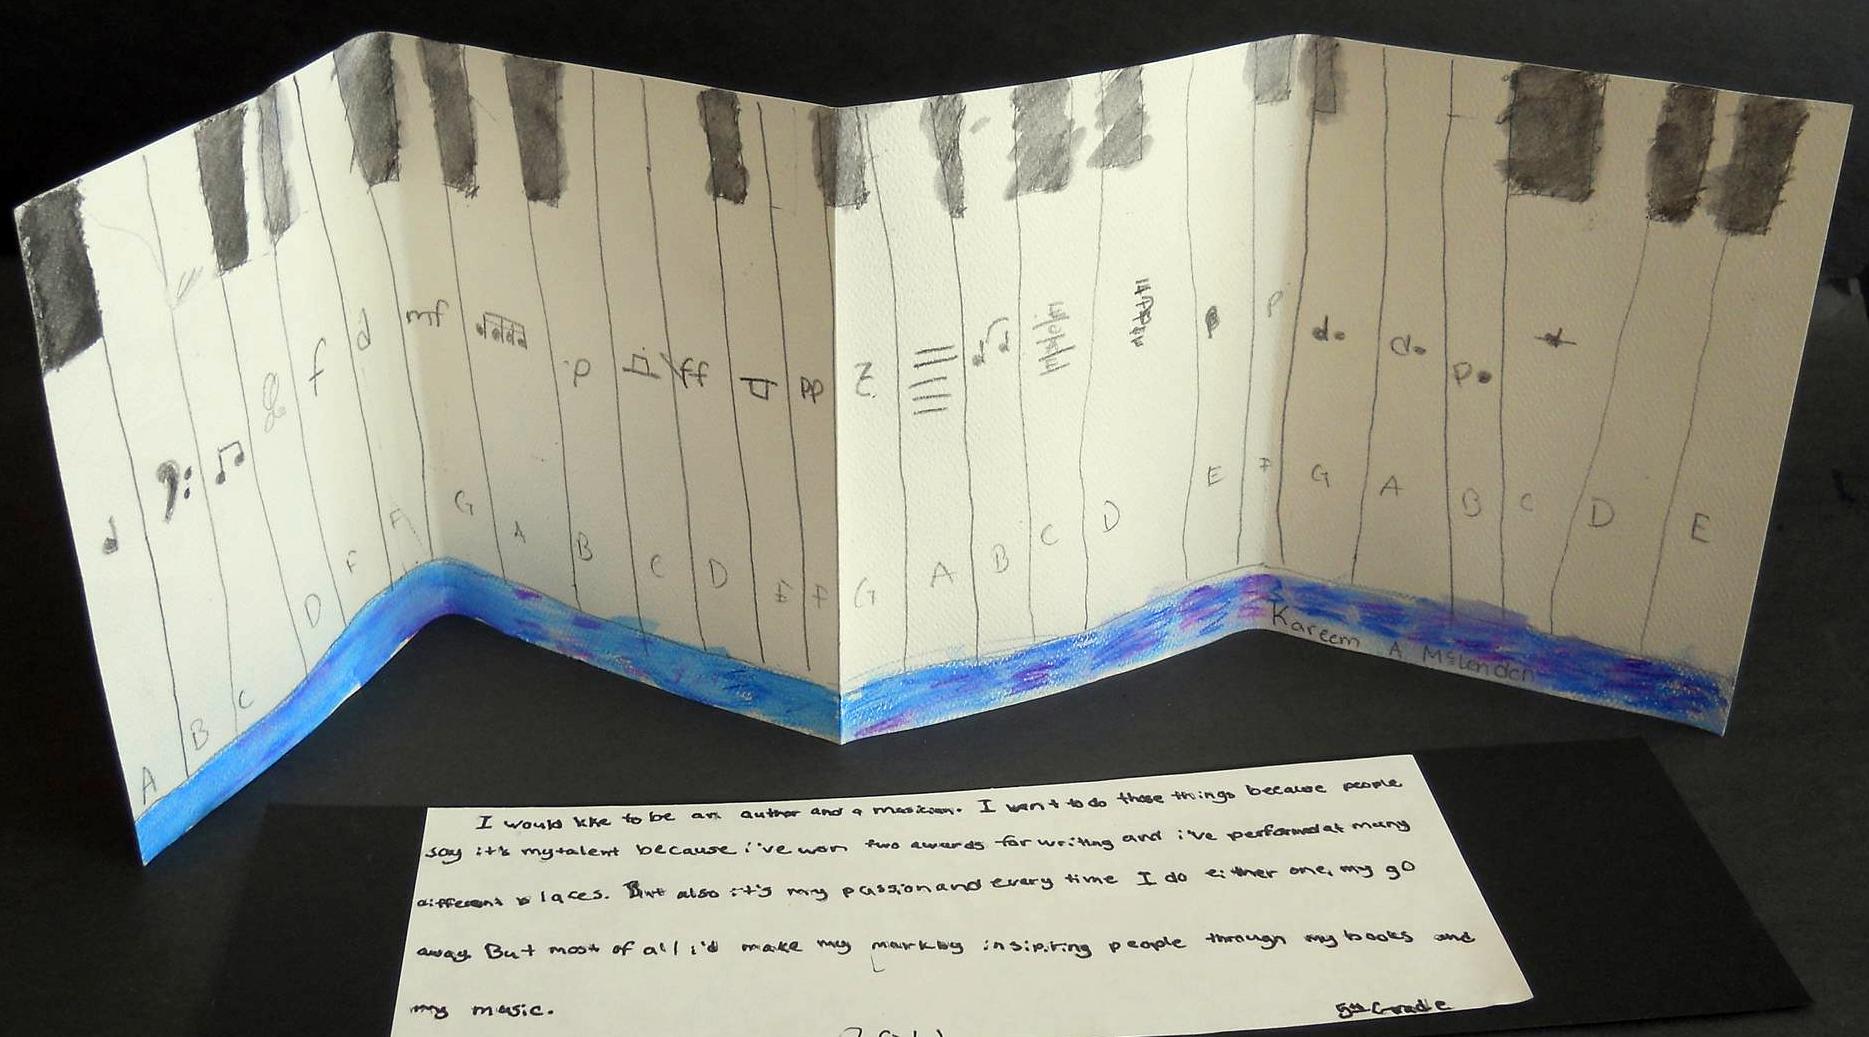 mf
f
p
ff
pp
A B C D F F G A B C D E F G A B C D E F G A B C D E
Kareem A McLendon
I would like to be an author and a musician. I want to do these things because people
say it's my talent because i've won two awards for writing and i've performed at many
different places. But also it's my passion and every time I do either one, my go
away. But most of all i'd make my mark by insipiring people through my books and
my music.
5th Grade